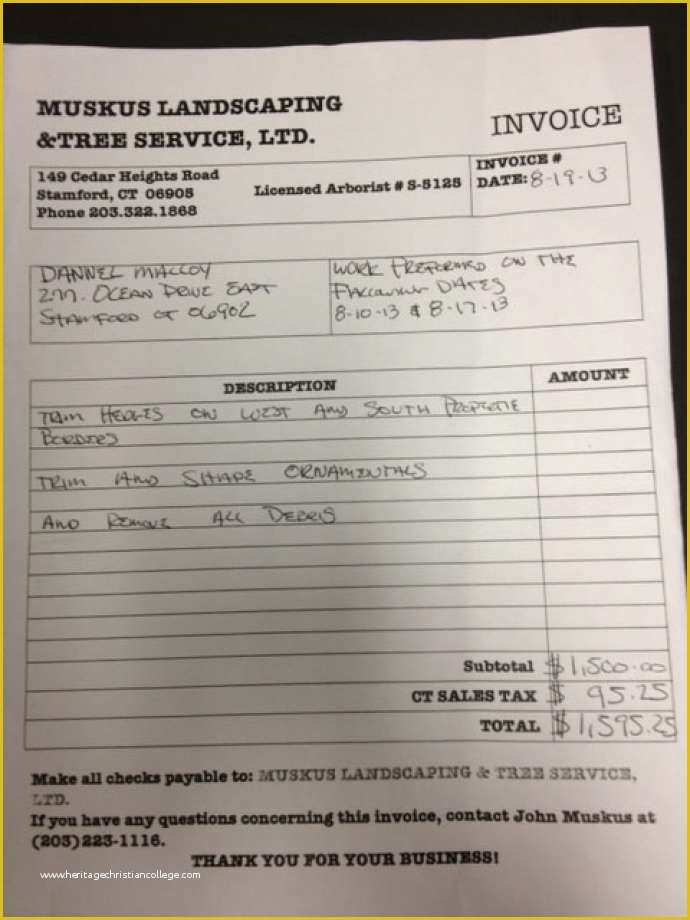 MUSKUS LANDSCAPING
&TREE SERVICE, LTD.
INVOICE
149 Cedar Heights Road
Stamford, CT 06905
Phone 203.322.1868
Licensed Arborist # S-5125
INVOICE #
DATE: 8-19-13
DANNEL MALLOY
277. OCEAN DRIVE EAST
STAMFORD CT 06902
WORK PREFORMED ON THE
DATES
8-10-13 & 8-17-13
DESCRIPTION
AMOUNT
TRIM HEDGES ON WEST AND SOUTH
BORDERS
TRIM AND SHAPE ORNAMENTALS
AND REMOVE ALL DEBRIS
Subtotal $1,500.00
CT SALES TAX $ 95.25
TOTAL $1,595.25
Make all checks payable to: MUSKUS LANDSCAPING & TREE SERVICE,
LTD.
If you have any questions concerning this invoice, contact John Muskus at
(203)223-1116.
THANK YOU FOR YOUR BUSINESS!
www.heritagechristiancollege.com